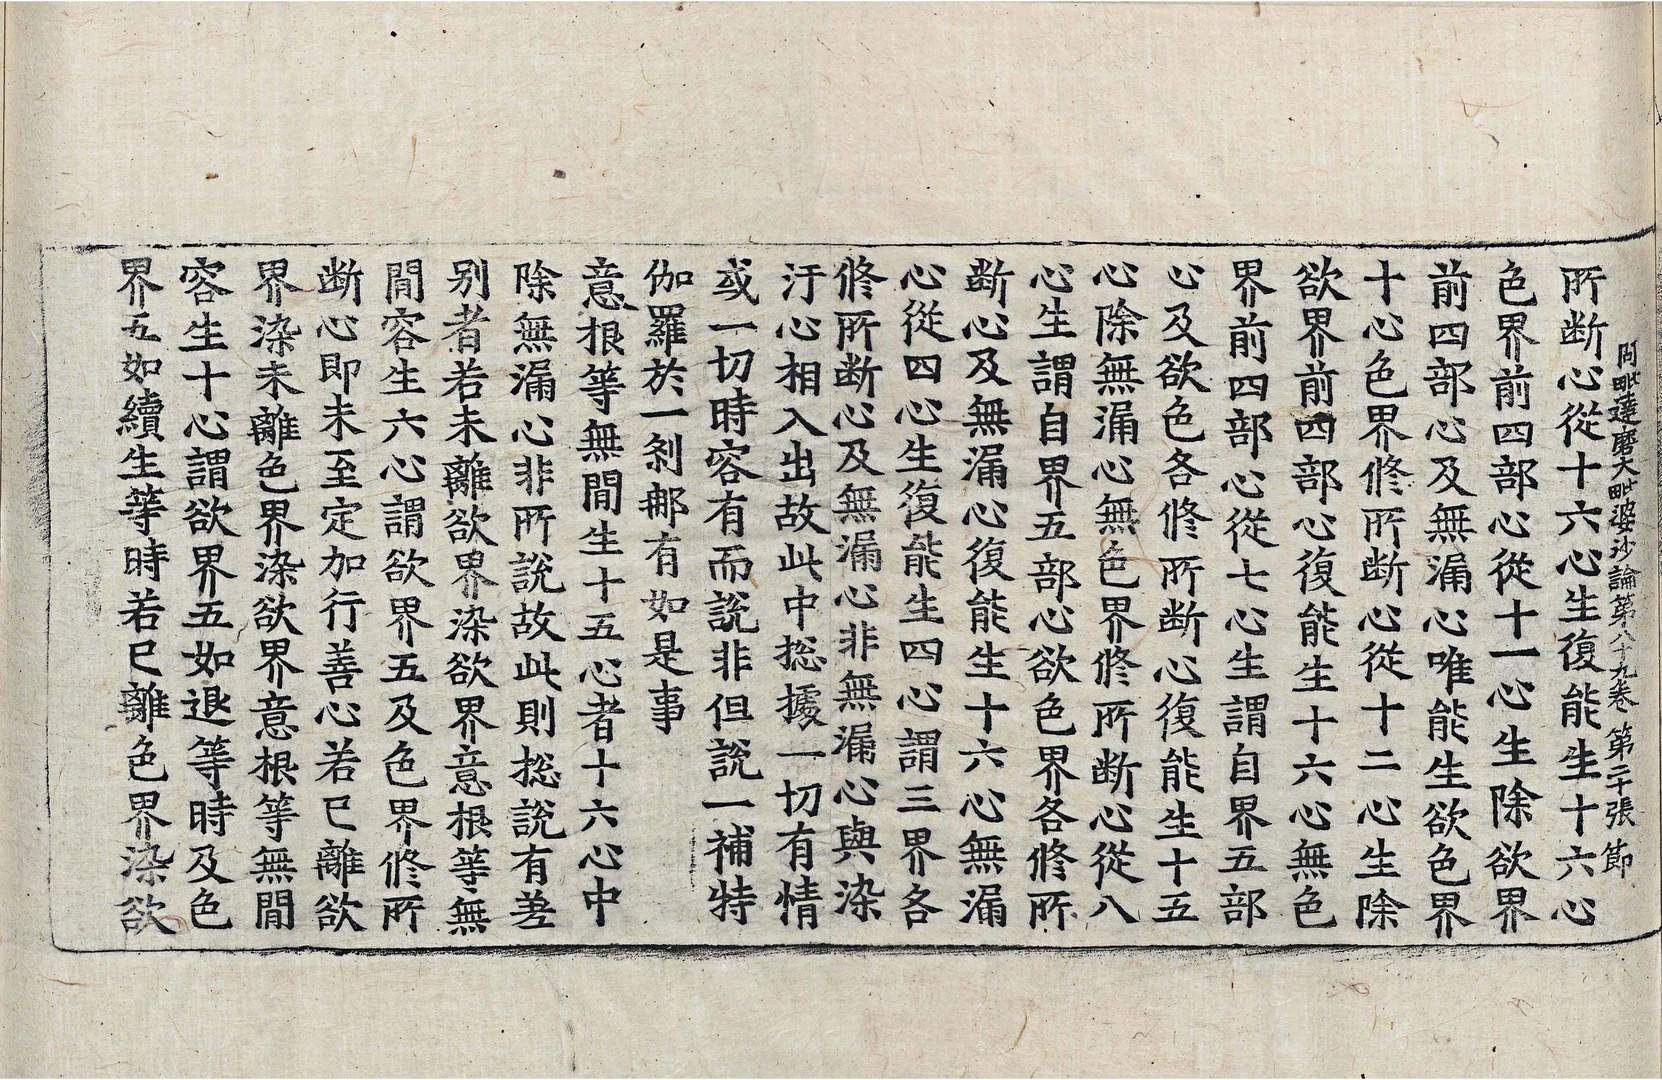 阿毗達磨大毗婆沙論第八十九卷 第二十張 節
所断心從十六心生復能生十六心
色界前四部心從十一心生除欲界
前四部心及無漏心唯能生欲色界
十心色界修所断心從十二心生除
欲界前四部心復能生十六心無色
界前四部心從七心生謂自界五部
心及欲色各修所断心復能生十五
心除無漏心無色界修所断心從八
心生謂自界五部心欲色界各修所
断心及無漏心復能生十六心無漏
心從四心生復能生四心謂三界各
修所断心及無漏心非無漏心與染
汙心相入出故此中捴據一切有情
或一切時容有而說非但說一補特
伽羅於一刹那有如是事
意根等無間生十五心者十六心中
除無漏心非所說故此則捴說有差
别者若未離欲界染欲界意根等無
間容生六心謂欲界五及色界修所
断心即未至定加行善心若已離欲
界染未離色界染欲界意根等無間
容生十心謂欲界五如退等時及色
界五如續生等時若已離色界染欲